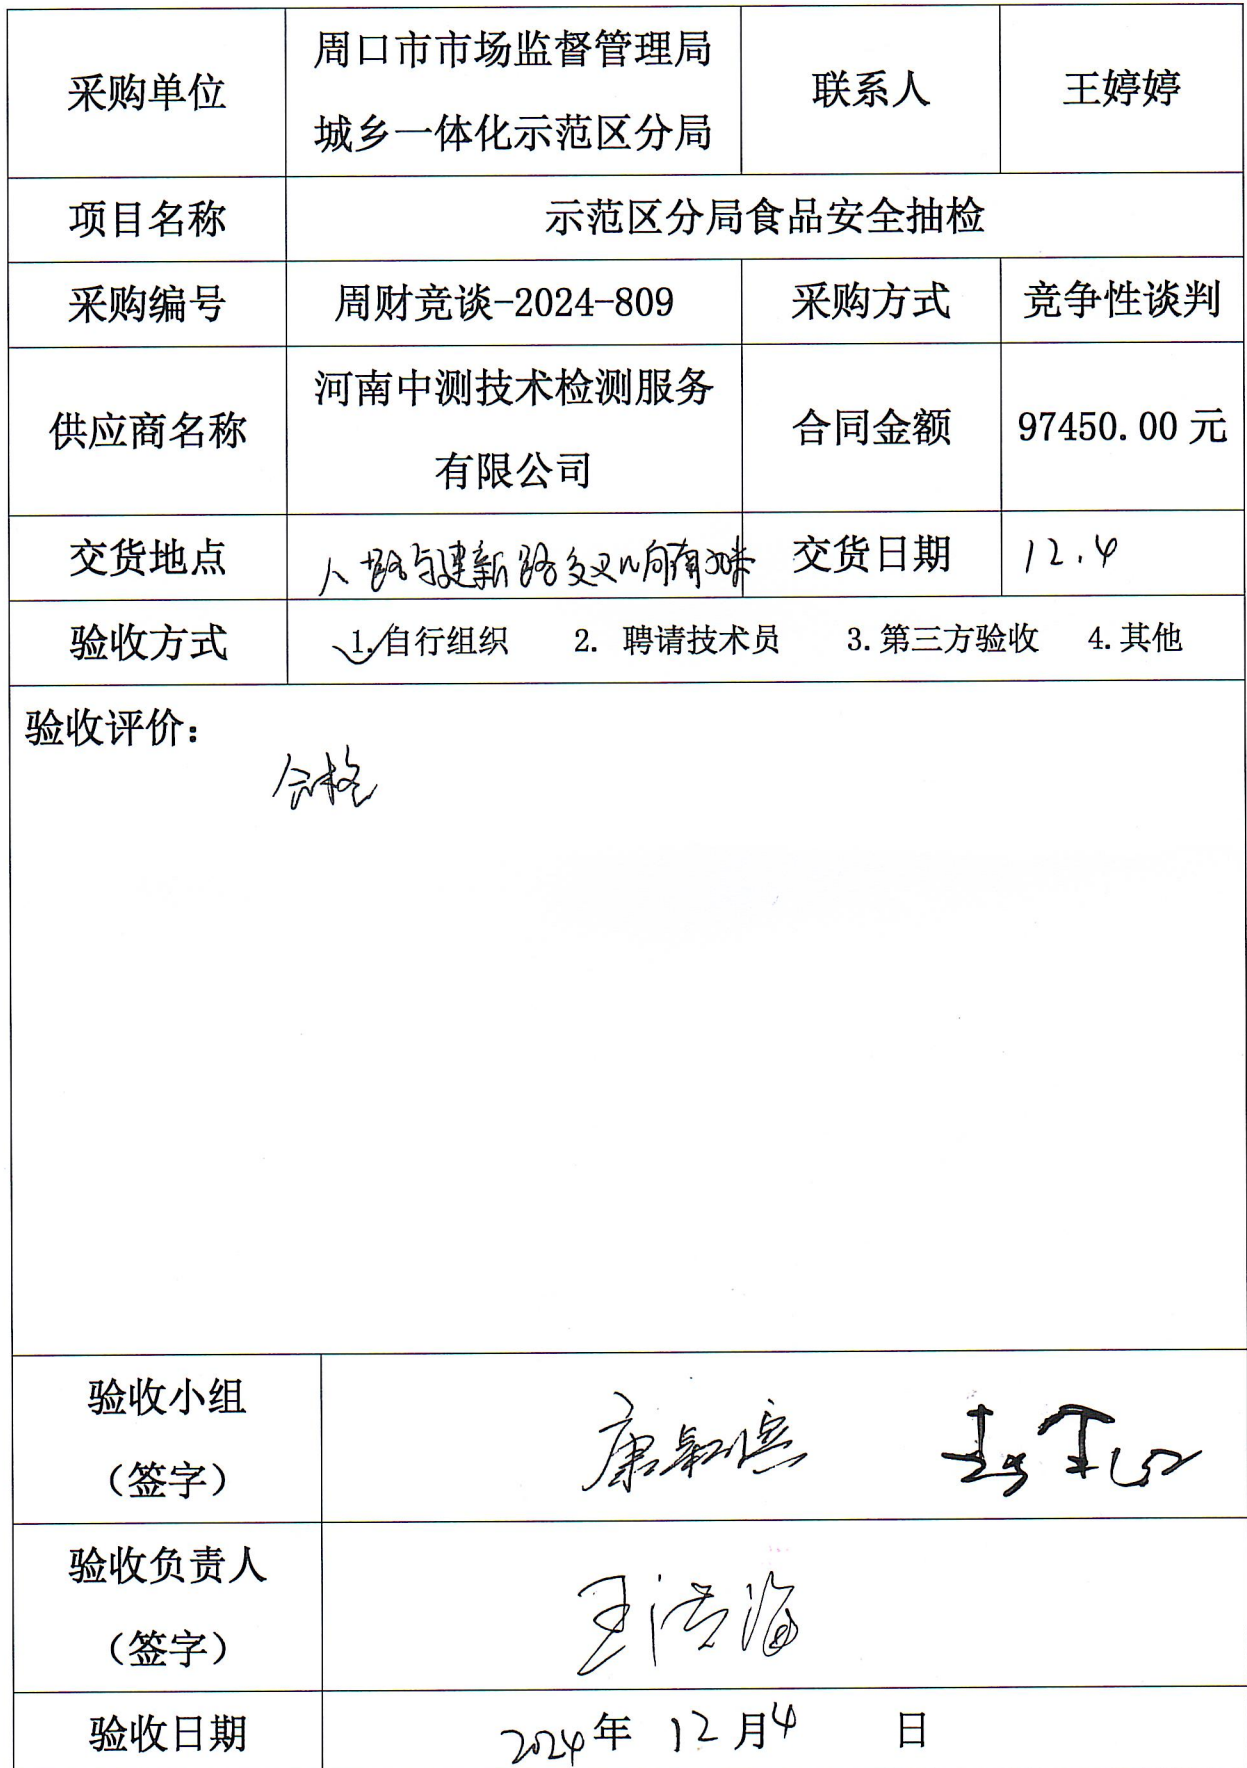 采购单位
周口市市场监督管理局
城乡一体化示范区分局
联系人
王婷婷
项目名称
示范区分局食品安全抽检
采购编号
周财竞谈-2024-809
采购方式
竞争性谈判
供应商名称
河南中测技术检测服务
有限公司
合同金额
97450.00 元
交货地点
路与建新路交叉口向南
交货日期
12.4
验收方式
1.自行组织 2. 聘请技术员 3.第三方验收 4.其他
验收评价：
合格
验收小组
（签字）
康
验收负责人
（签字）
王洪海
验收日期
2024年 12月4 日